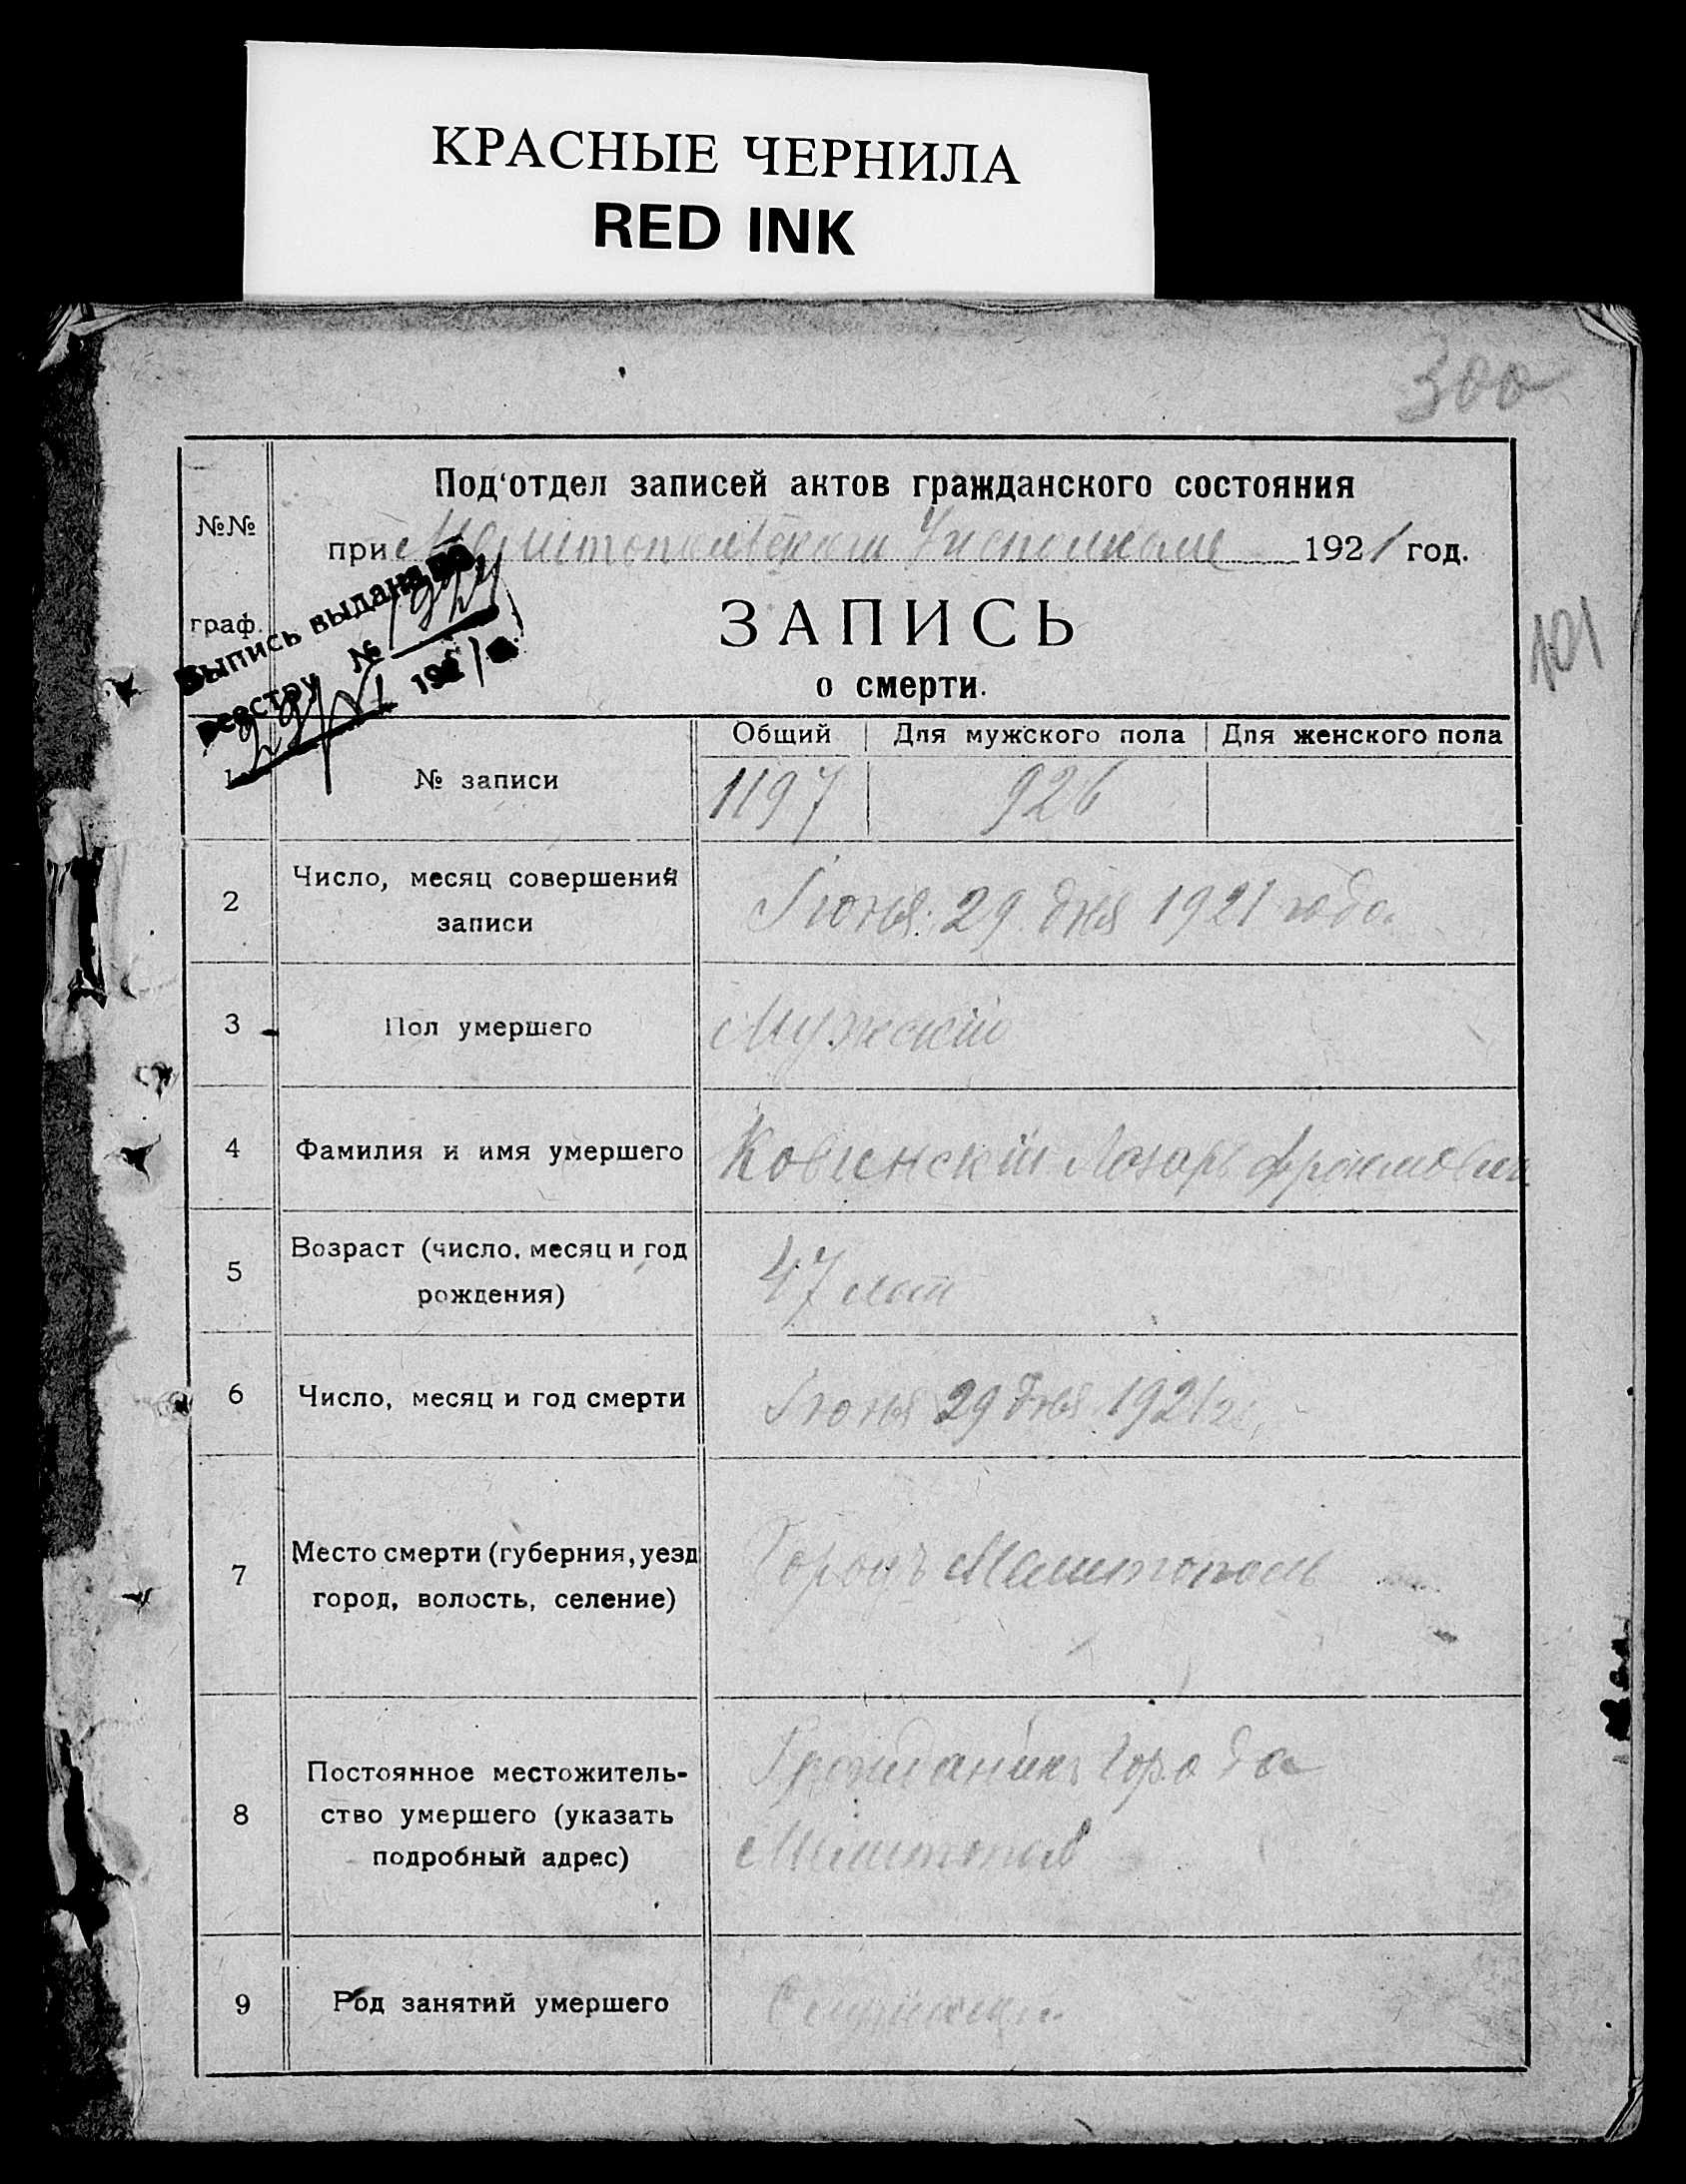 КРАСНЫЕ ЧЕРНИЛА
RED INK
300
Под‘отдел записей актов гражданского состояния
№№
при Мелитопольском Исполкоме 1921 год.
граф.
ЗАПИСЬ
о смерти.
101
Выпись выдана по
реестру № 1924
29/VI 1921 г.
Общий Для мужского пола Для женского пола
1 № записи 1197 926
2 Число, месяц совершения
записи
Іюня 29 дня 1921 года
3 Пол умершего Мужской
4 Фамилия и имя умершего Ковенскій Лазарь
5 Возраст (число, месяц и год
рождения)
47 лет
6 Число, месяц и год смерти Іюня 29 дня 1921 г.
7 Место смерти (губерния, уезд
город, волость, селение)
Городъ Мелитополь
8 Постоянное местожитель-
ство умершего (указать
подробный адрес)
Гражданинъ города
Мелитополь
9 Род занятий умершего